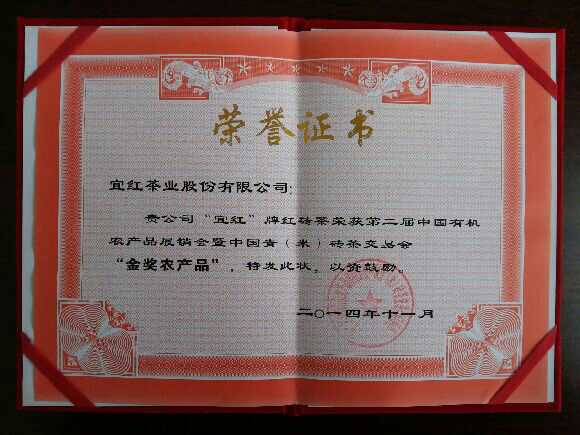 荣誉证书
宜红茶业股份有限公司：
贵公司“宜红”牌红砖茶荣获第二届中国有机
农产品展销会暨中国青（米）砖茶交易会
“金奖农产品”，特发此状，以资鼓励。
二〇一四年十一月